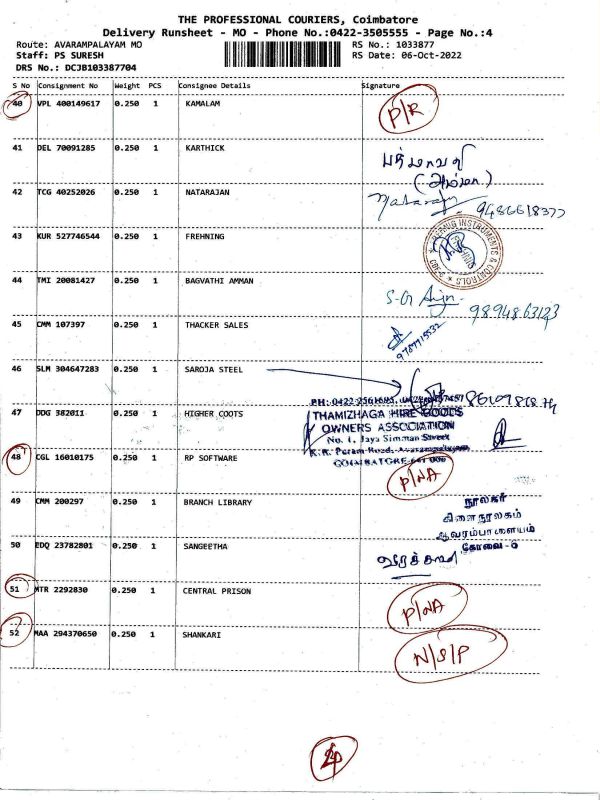 THE PROFESSIONAL COURIERS, Coimbatore
Delivery Runsheet - MO - Phone No.:0422-3505555 - Page No.:4
Route: AVARAMPALAYAM MO
RS No.: 1033877
Staff: PS SURESH
RS Date: 06-Oct-2022
DRS No.: DCJB103387704
S No Consignment No Weight PCS Consignee Details Signature
40 VPL 400149617 0.250 1 KAMALAM P/R
41 DEL 70091285 0.250 1 KARTHICK பத்மாவதி
(அம்மா)
42 TCG 40252026 0.250 1 NATARAJAN Natarajan 9486618377
43 KUR 527746544 0.250 1 FREHNING INSTRUMENTS & CONTROLS
44 TMI 20081427 0.250 1 BAGVATHI AMMAN S-G 9894863123
45 CMM 107397 0.250 1 THACKER SALES
46 SLM 304647283 0.250 1 SAROJA STEEL
PH: 0422-2561695,
47 DDG 382011 0.250 1 HIGHER COOTS THAMIZHAGA HIRE GOODS
OWNERS ASSOCIATION
No. 1, Jaya Simman Street
K.R. Puram Road, Avarampalayam,
COIMBATORE-641 006
48 CGL 16010175 0.250 1 RP SOFTWARE P/NA
49 CMM 200297 0.250 1 BRANCH LIBRARY நூலகர்
கிளை நூலகம்
ஆவரம்பாளையம்
கோவை-6
50 EDQ 23782801 0.250 1 SANGEETHA
51 MTR 2292830 0.250 1 CENTRAL PRISON P/NA
52 MAA 294370650 0.250 1 SHANKARI N/S/P